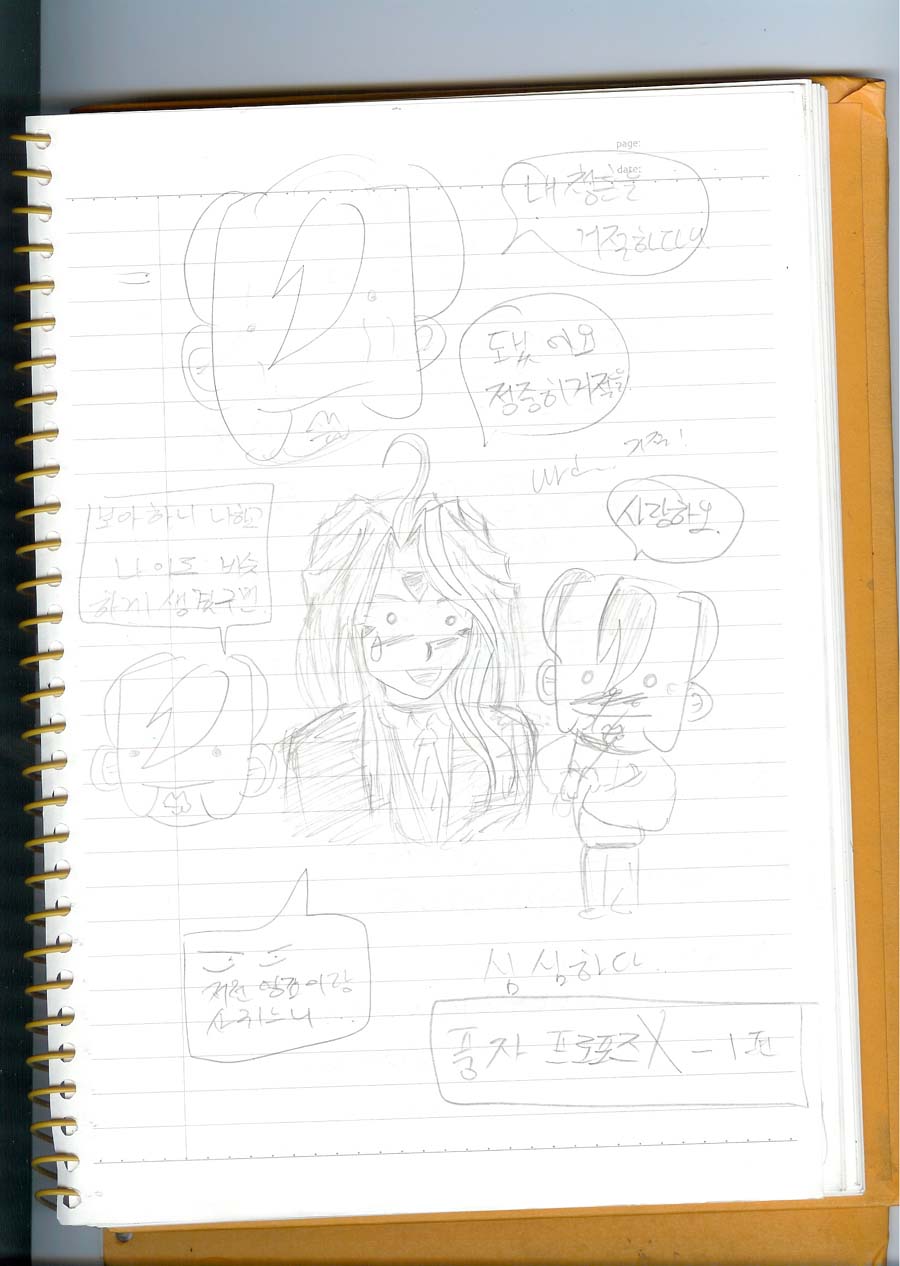 page:
date:
내 청혼을
거절하다니
됐어요
정중히 거절을
거절!
사랑하오
보아하니 나하고
나이도 비슷
하게 생겼구먼
저런 땅꼬마랑
사귀느니...
심심하다...
풍자 프로포즈X - 1편